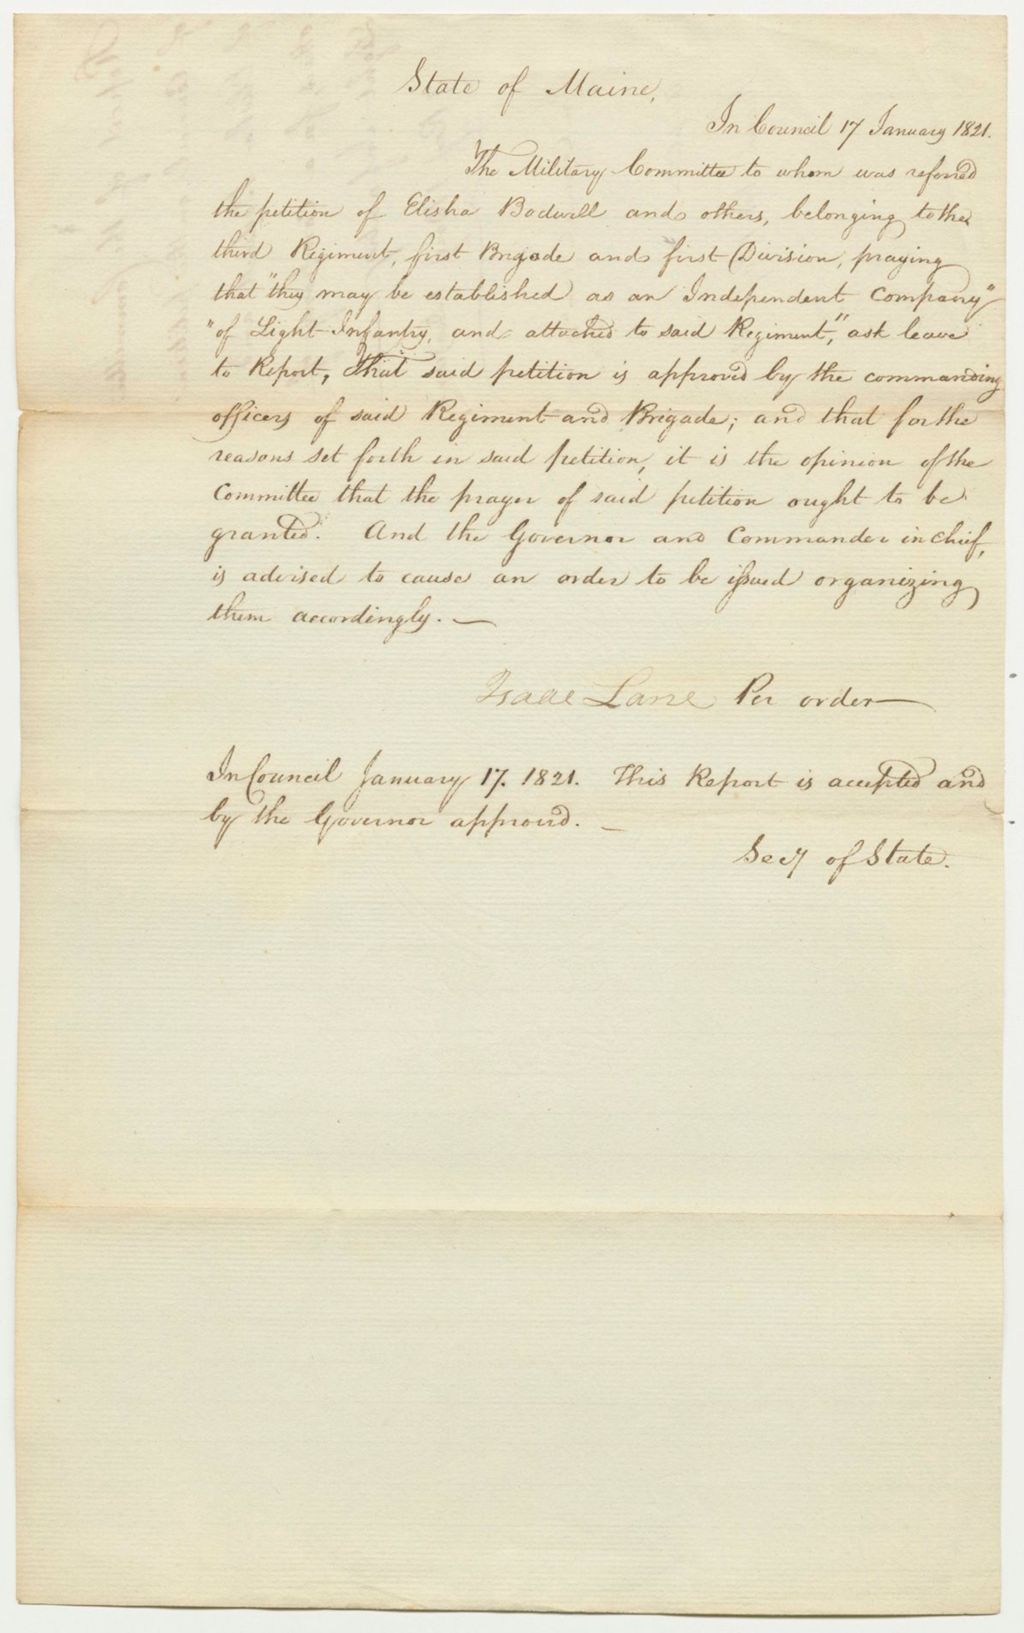 State of Maine,
In Council 17 January 1821.
The Military Committee to whom was referred
the petition of Elisha Bodwell and others, belonging to the
third Regiment, first Brigade and first Division, praying
that "they may be established as an Independent Company"
"of Light Infantry, and attached to said Regiment," ask leave
to Report, That said petition is approved by the commanding
officers of said Regiment and Brigade; and that for the
reasons set forth in said petition, it is the opinion of the
Committee that the prayer of said petition ought to be
granted. And the Governor and Commander in chief,
is advised to cause an order to be issued organizing
them accordingly. —
Isaac Lane Per order —
In Council January 17. 1821. This Report is accepted and
by the Governor approved. —
Secy of State.